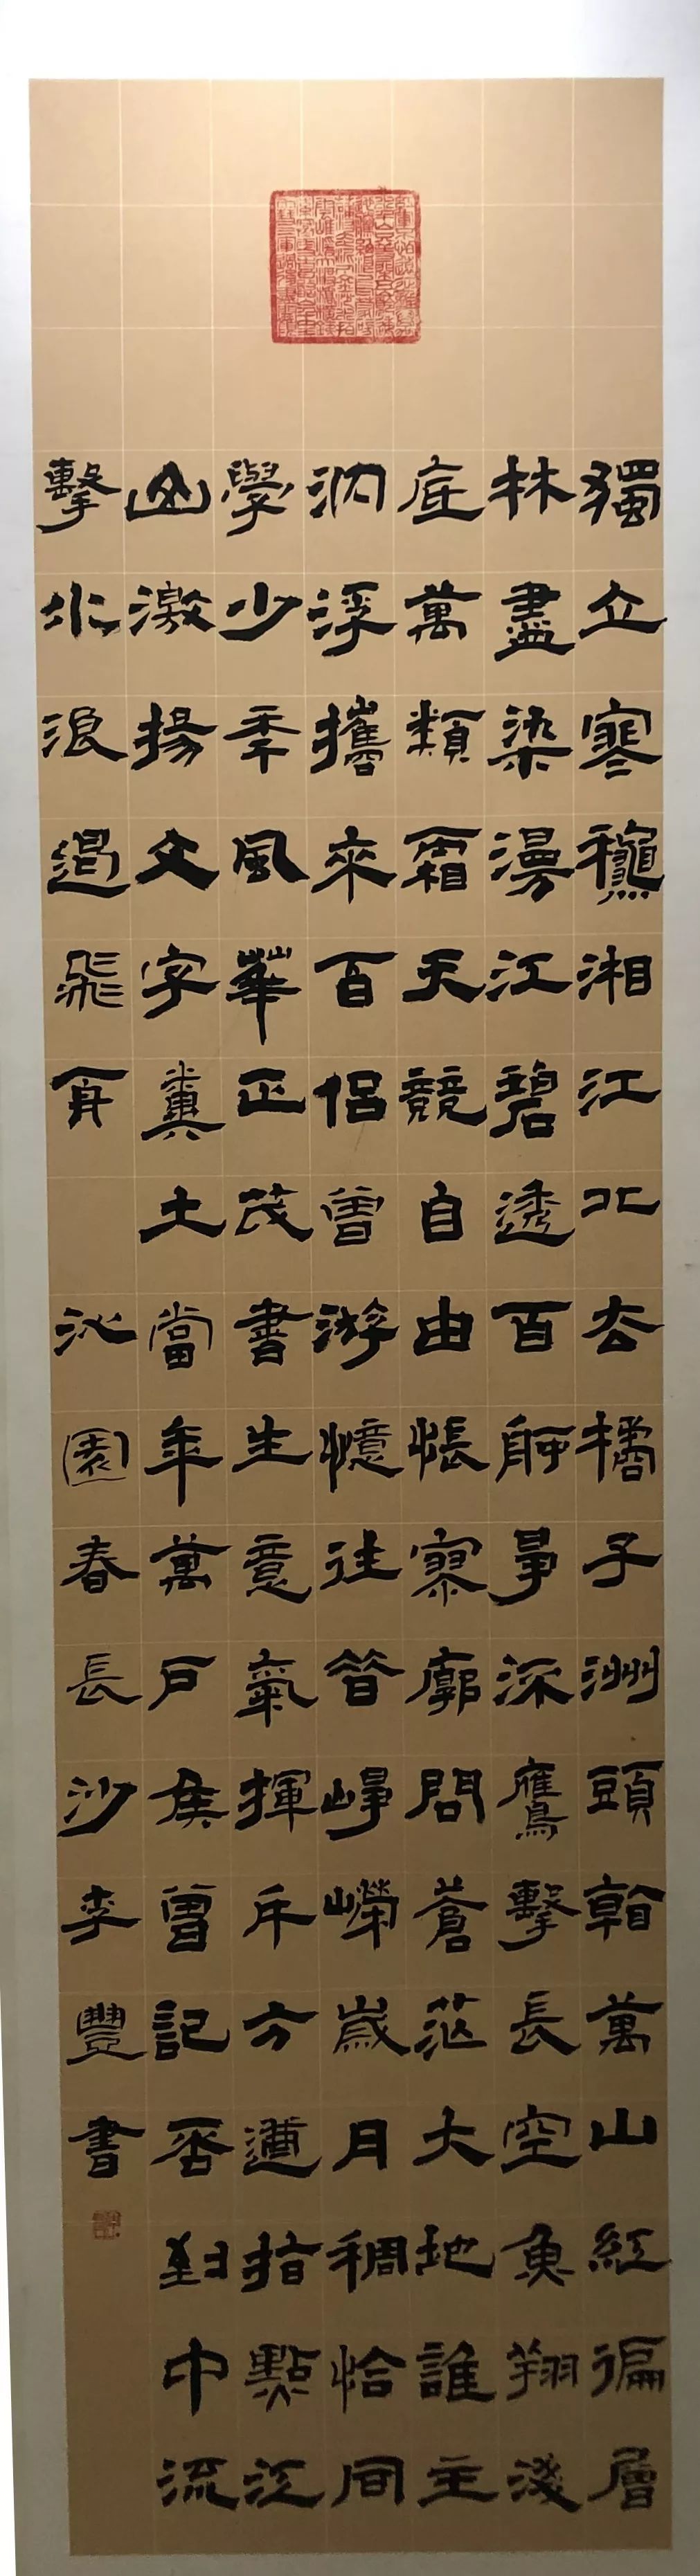 獨立寒穐湘江北去橘子洲頭看萬山紅徧層
林盡染漫江碧透百舸爭流鷹擊長空魚翔淺
底萬類霜天競自由悵寥廓問蒼茫大地誰主
沉浮攜來百侶曾游憶往昔崢嶸歲月稠恰同
學少年風華正茂書生意氣揮斥方遒指點江
山激揚文字糞土當年萬戶侯曾記否到中流
擊水浪遏飛舟 沁園春長沙李豐書